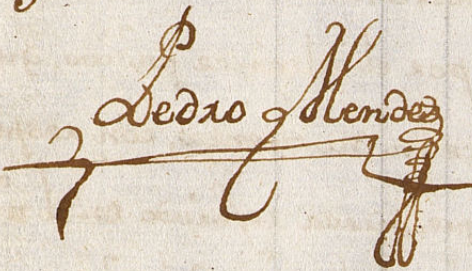 Pedro Mendez